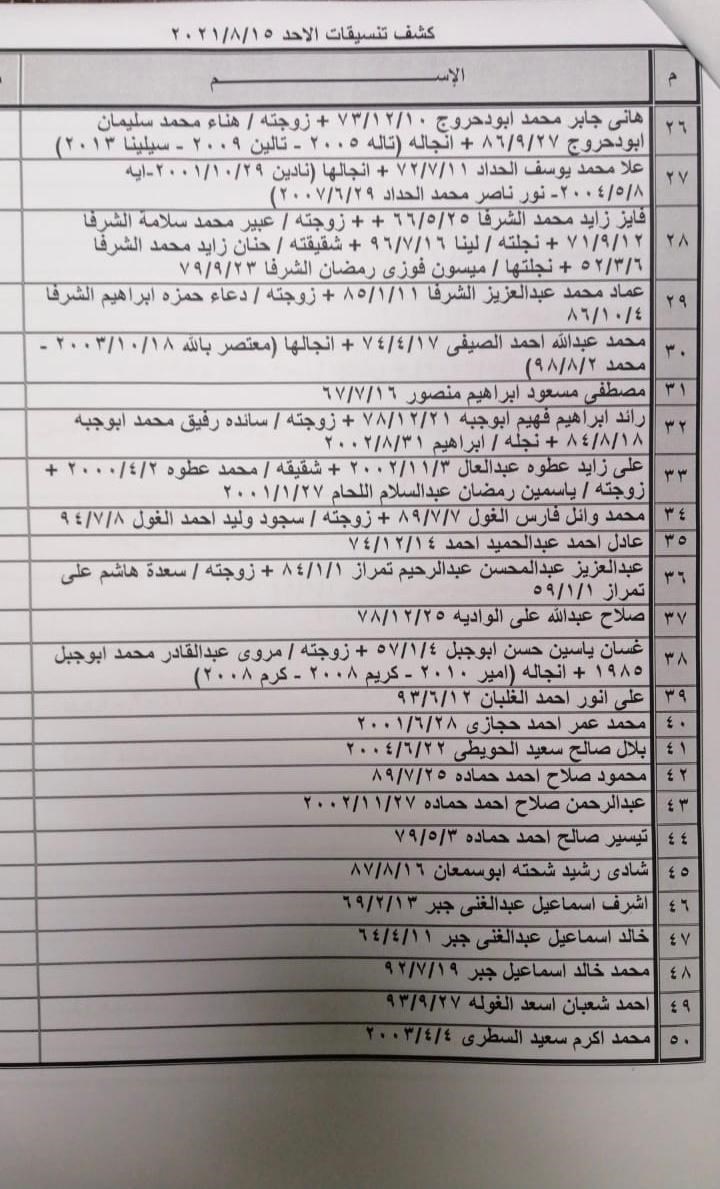 كشف تنسيقات الاحد ٢٠٢١/٨/١٥
م الإســــــــــــم
٢٦ هانى جابر محمد ابودحروج ٧٣/١٢/١٠ + زوجته / هناء محمد سليمان
ابودحروج ٨٦/٩/٢٧ + انجاله (تاله ٢٠٠٥ - تالين ٢٠٠٩ - سيلينا ٢٠١٣)
٢٧ علا محمد يوسف الحداد ٧٢/٧/١١ + انجالها (نادين ٢٠٠١/١٠/٢٩-ايه
٢٠٠٤/٥/٨- نور ناصر محمد الحداد ٢٠٠٧/٦/٢٩)
٢٨ فايز زايد محمد الشرفا ٦٦/٥/٢٥ + + زوجته / عبير محمد سلامة الشرفا
٧١/٩/١٢ + نجلته / لينا ٩٦/٧/١٦ + شقيقته / حنان زايد محمد الشرفا
٥٢/٣/٦ + نجلتها / ميسون فوزى رمضان الشرفا ٧٩/٩/٢٣
٢٩ عماد محمد عبدالعزيز الشرفا ٨٥/١/١١ + زوجته / دعاء حمزه ابراهيم الشرفا
٨٦/١٠/٤
٣٠ محمد عبدالله احمد الصيفى ٧٤/٤/١٧ + انجالها (معتصر بالله ٢٠٠٣/١٠/١٨ -
محمد ٩٨/٨/٢)
٣١ مصطفى مسعود ابراهيم منصور ٦٧/٧/١٦
٣٢ رائد ابراهيم فهيم ابوجبه ٧٨/١٢/٢١ + زوجته / سانده رفيق محمد ابوجبه
٨٤/٨/١٨ + نجله / ابراهيم ٢٠٠٢/٨/٣١
٣٣ على زايد عطوه عبدالعال ٢٠٠٢/١١/٣ + شقيقه / محمد عطوه ٢٠٠٠/٤/٢ +
زوجته / ياسمين رمضان عبدالسلام اللحام ٢٠٠١/١/٢٧
٣٤ محمد وائل فارس الغول ٨٩/٧/٧ + زوجته / سجود وليد احمد الغول ٩٤/٧/٨
٣٥ عادل احمد عبدالحميد احمد ٧٤/١٢/١٤
٣٦ عبدالعزيز عبدالمحسن عبدالرحيم تمراز ٨٤/١/١ + زوجته / سعدة هاشم على
تمراز ٥٩/١/١
٣٧ صلاح عبدالله على الواديه ٧٨/١٢/٢٥
٣٨ غسان ياسين حسن ابوجبل ٥٧/١/٤ + زوجته / مروى عبدالقادر محمد ابوجبل
١٩٨٥ + انجاله (امير ٢٠١٠ - كريم ٢٠٠٨ - كرم ٢٠٠٨)
٣٩ على انور احمد الغلبان ٩٣/٦/١٢
٤٠ محمد عمر احمد حجازى ٢٠٠١/٦/٢٨
٤١ بلال صالح سعيد الحويطى ٢٠٠٤/٦/٢٢
٤٢ محمود صلاح احمد حماده ٨٩/٧/٢٥
٤٣ عبدالرحمن صلاح احمد حماده ٢٠٠٢/١١/٢٧
٤٤ تيسير صالح احمد حماده ٧٩/٥/٣
٤٥ شادى رشيد شحته ابوسمعان ٨٧/٨/١٦
٤٦ اشرف اسماعيل عبدالغنى جبر ٦٩/٢/١٣
٤٧ خالد اسماعيل عبدالغنى جبر ٦٤/٤/١١
٤٨ محمد خالد اسماعيل جبر ٩٢/٧/١٩
٤٩ احمد شعبان اسعد الغوله ٩٣/٩/٢٧
٥٠ محمد اكرم سعيد السطرى ٢٠٠٣/٤/٤